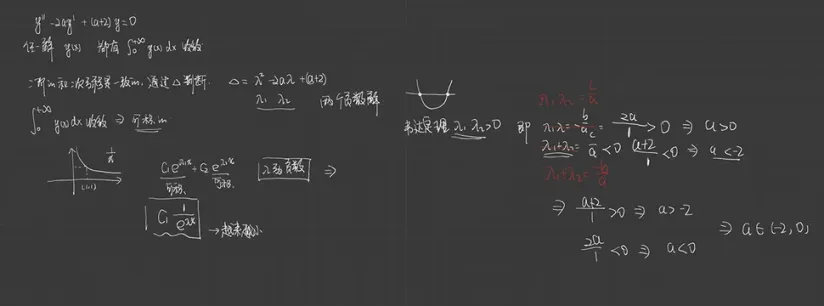 y'' - 2ay' + (a+2)y = 0
任一解 y(x) 都有 ∫₀^{+∞} y(x) dx 收敛
二阶 齐次 通过 △ 判断. △ = λ² - 2aλ + (a+2)
λ₁ λ₂ 两个负数解
∫₀^{+∞} y(x) dx 收敛 ⇒ 可积
C₁e^{λ₁x} + C₂e^{λ₂x} λ为负数 ⇒
可积 可积
C₁ 1/e^{λx} → 越来越小
韦达定理 λ₁λ₂ > 0 即
λ₁λ₂ = c/a
λ₁λ₂ = -b/a = 2a/1 > 0 ⇒ a > 0
λ₁+λ₂ = c/a < 0 (a+2)/1 < 0 ⇒ a < -2
λ₁+λ₂ = -b/a
⇒ (a+2)/1 > 0 ⇒ a > -2
2a/1 < 0 ⇒ a < 0
⇒ a ∈ (-2, 0)